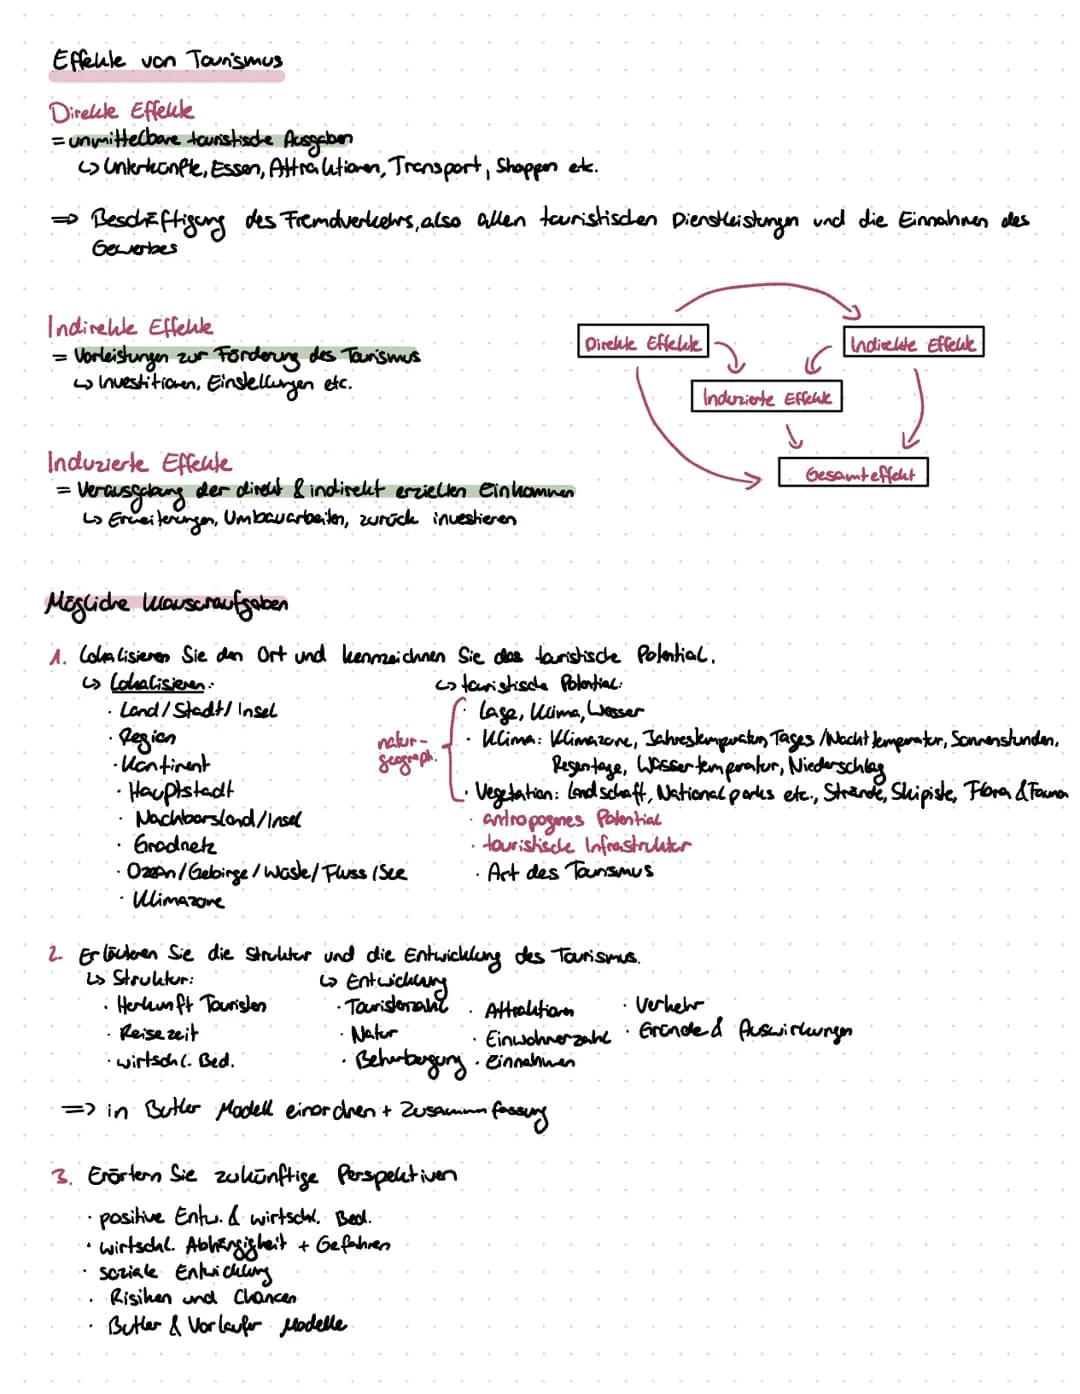 Effekte von Tourismus
Direkte Effekte
= unmittelbare touristische Ausgaben
↳ Unterkünfte, Essen, Attraktionen, Transport, Shoppen etc.
=> Beschäftigung des Fremdverkehrs, also allen touristischen Dienstleistungen und die Einnahmen des
Gewerbes
Indirekte Effekte
= Vorleistungen zur Förderung des Tourismus
↳ Investitionen, Einstellungen etc.
Direkte Effekte
Indirekte Effekte
Induzierte Effekte
Gesamteffekt
Induzierte Effekte
= Verausgabung der direkt & indirekt erzielten Einkommen
↳ Erweiterungen, Umbauarbeiten, zurück investieren
Mögliche Klausuraufgaben
1. Lokalisieren Sie den Ort und kennzeichnen Sie das touristische Potential.
↳ Lokalisieren:
· Land/Stadt/Insel
· Region
· Kontinent
· Hauptstadt
· Nachbarsland/Insel
· Gradnetz
· Ozean/Gebirge/Wüste/Fluss/See
· Klimazone
↳ touristische Potential:
natur-
geograph.
· Lage, Klima, Wasser
· Klima: Klimazone, Jahrestemperatur, Tages/Nacht temperatur, Sonnenstunden,
Regentage, Wassertemperatur, Niederschlag
· Vegetation: Landschaft, Nationalparks etc., Strände, Skipiste, Flora & Fauna
· antropogenes Potential
· touristische Infrastruktur
· Art des Tourismus
2. Erläuteren Sie die Struktur und die Entwicklung des Tourismus.
↳ Struktur:
· Herkunft Touristen
· Reisezeit
· wirtschl. Bed.
↳ Entwicklung
· Touristenzahl
· Natur
· Beherbergung
· Attraktionen
· Einwohnerzahl
· Einnahmen
· Verkehr
· Gründe & Auswirkungen
=> in Butler Modell einordnen + Zusammenfassung
3. Erörtern Sie zukünftige Perspektiven
· positive Entw. & wirtschl. Bed.
· wirtschl. Abhängigkeit + Gefahren
· soziale Entwicklung
· Risiken und Chancen
· Butler & Vorlaufer Modelle